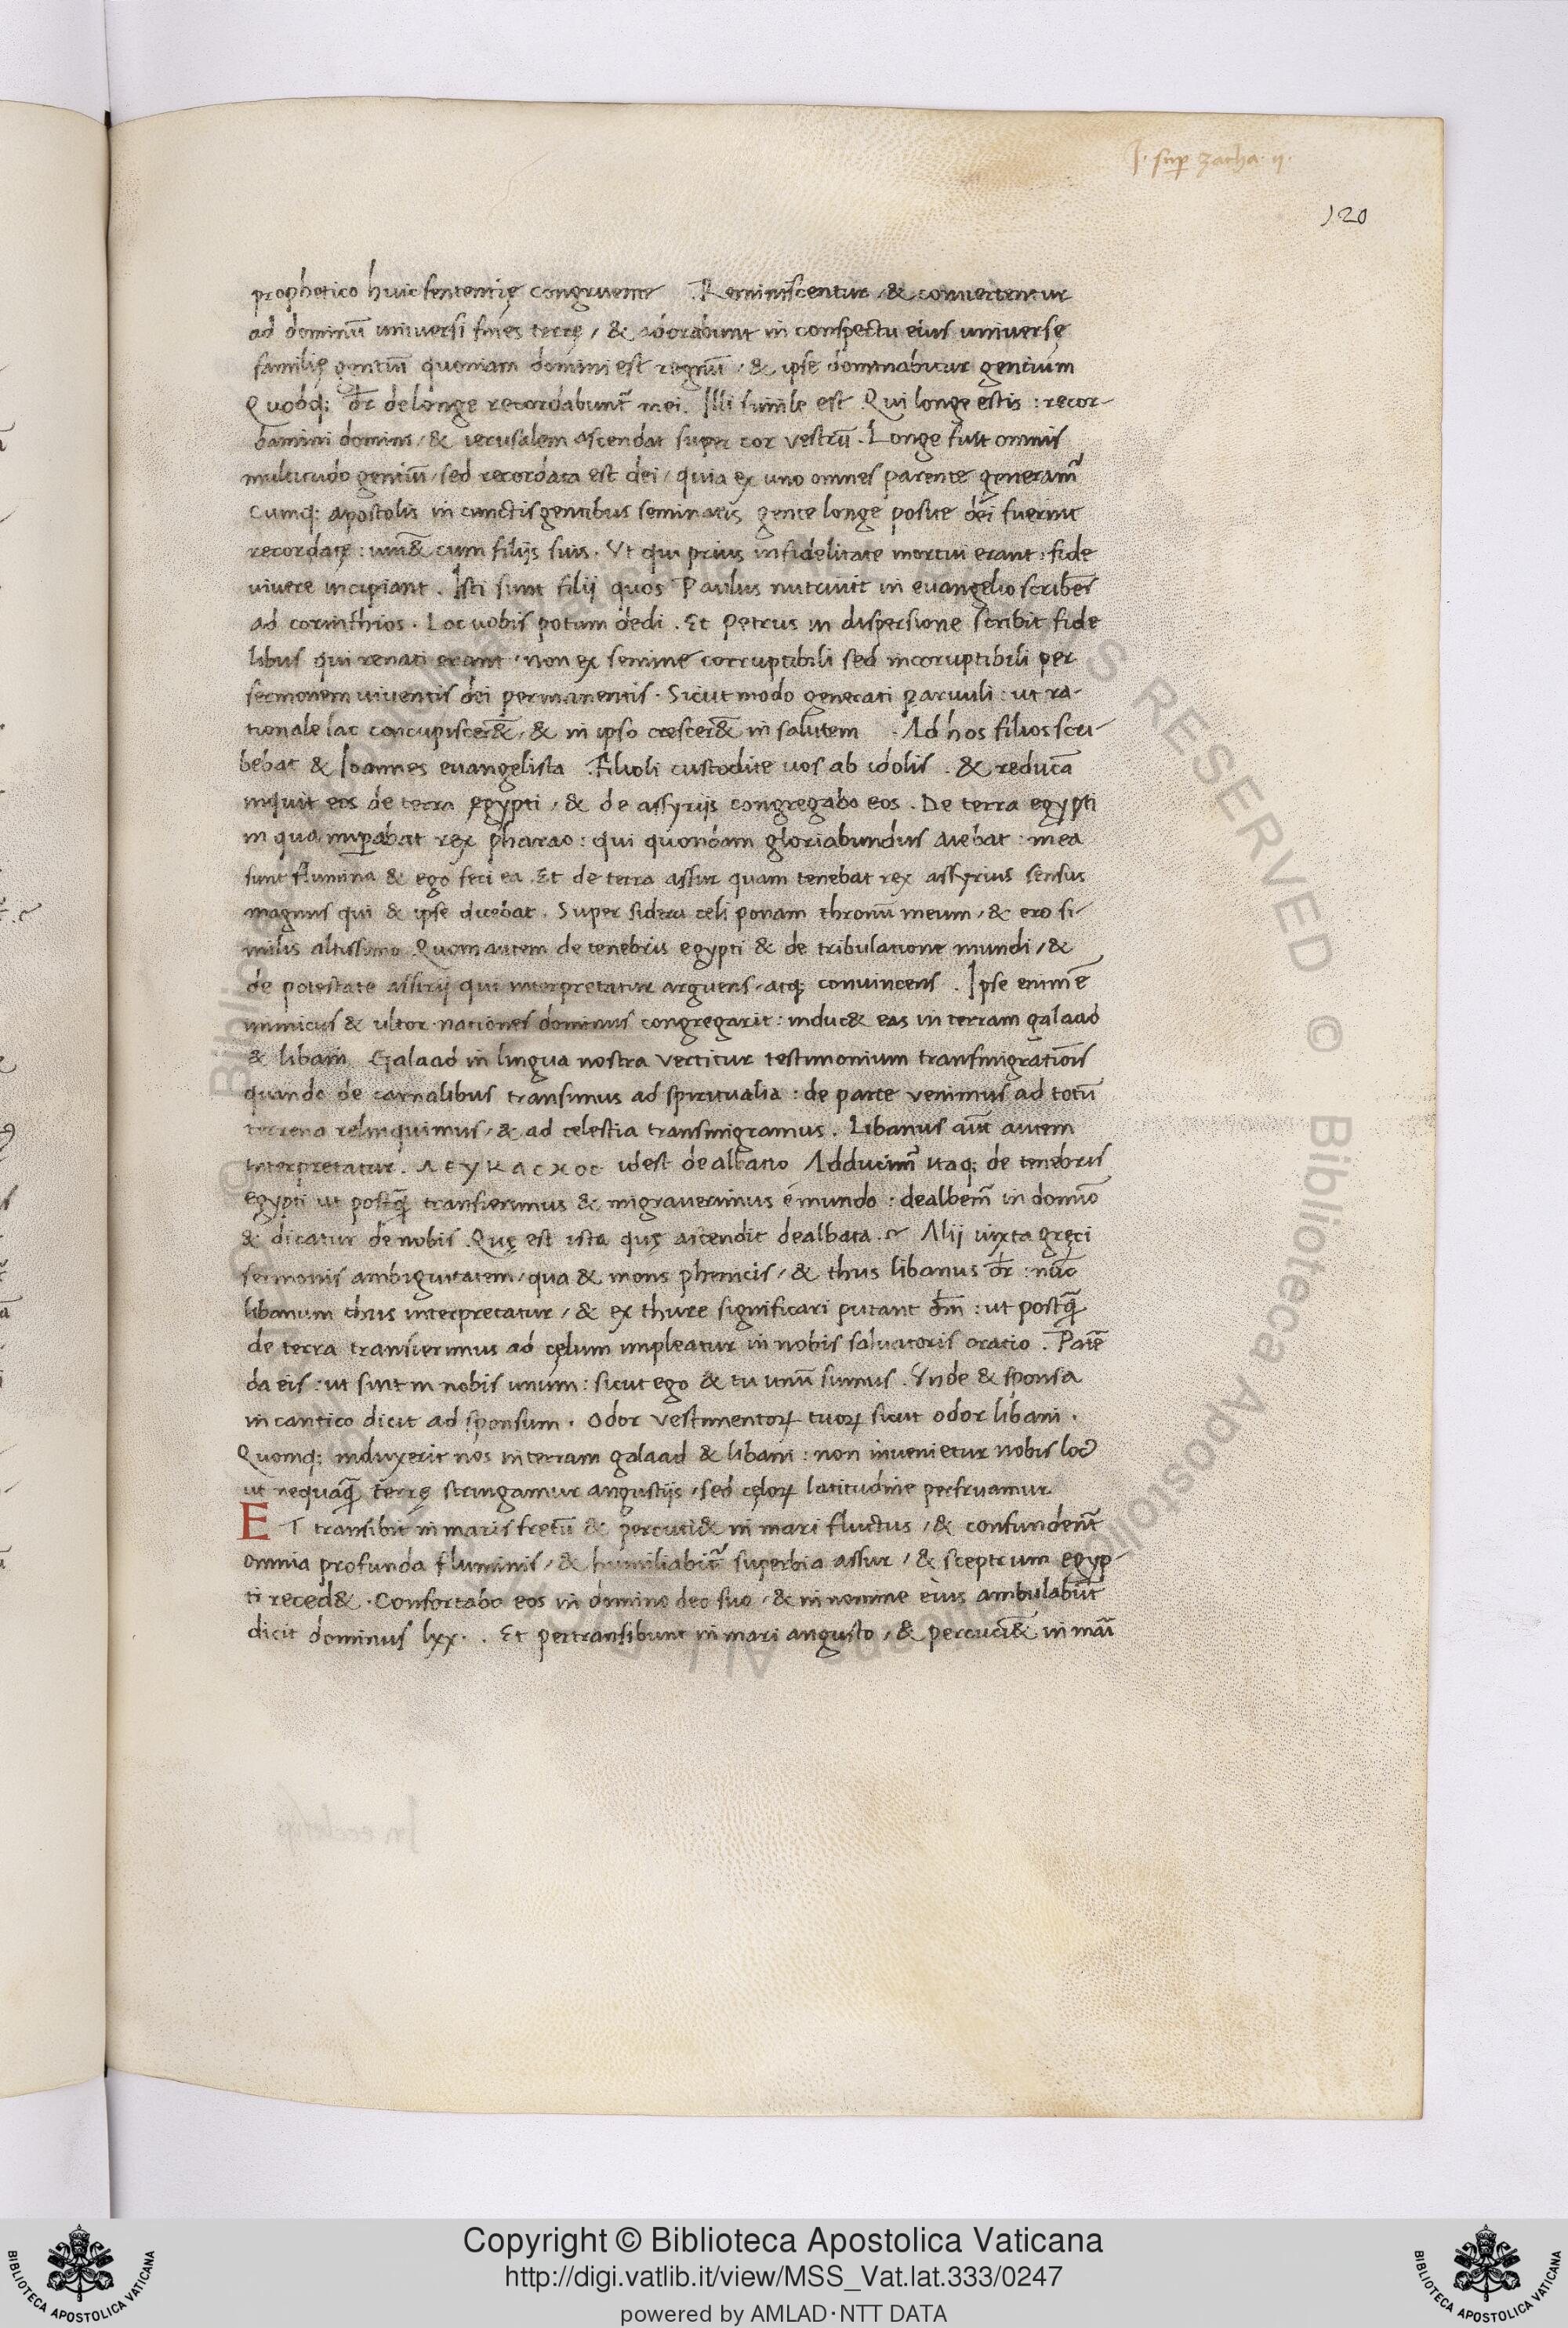 J. sup̄ zacha. ij.
120
prophetico huic sententię congruente .Reminiscentur, & conuertentur
ad dominū uniuersi fines terrę, & adorabunt in conspectu eius uniuersę
familię gentiū quoniam domini est regnū, & ipse dominabitur gentium
Quodq; dr̄ de longe recordabunt̄ mei. Illi simile est .Qui longe estis : recor-
damini domini, & ierusalem ascendat super cor vestrū. Longe fuit omnis
multitudo gentiū, sed recordata est dei, quia ex uno omnes parente generam̄
Cumq; apostolis in cunctis gentibus seminatis gente longe posite dei fuerint
recordatę : uiu& cum filijs suis. Ut qui prius infidelitate mortui erant : fide
vivere incipiant. Isti sunt filij quos Paulus nutriuit in euangelio scribēs
ad corinthios. Lac uobis potum dedi. Et Petrus in dispersione scribit fide
libus qui renati erant, non ex semine corruptibili sed incoruptibili per
sermonem viventis dei permanentis. Sicut modo generati paruuli : ut ra-
tionale lac concupiscer&, & in ipso crescer& in salutem . Ad hos filios scri-
bebat & Ioannes euangelista .Filioli custodite uos ab idolis . & reducā
inquit eos de terra egypti, & de assyrijs congregabo eos. De terra egypti
in qua imꝑabat rex pharao : qui quondam gloriabundus aiebat : mea
sunt flumina & ego feci ea. Et de terra assur quam tenebat rex assyrius sensus
magnus qui & ipse dicebat. Super sidera celi ponam thronū meum, & ero si-
milis altissimo .Quom autem de tenebris egypti & de tribulatione mundi, &
de potestate assirij qui interpretatur arguens, atq; convincens . Ipse enim ē
inimicus & ultor nationes dominus congregarit : induc& eas in terram galaad
& libani. Galaad in lingua nostra vertitur testimonium transmigratiōis
quando de carnalibus transimus ad spiritualia : de parte venimus ad totū
terrena relinquimus, & ad celestia transmigramus. Libanus aūt autem
interpretatur. ΛΕΥΚΑCΧΟC idest dealbatio Adducim̄ itaq; de tenebris
egypti ut postq̄ transierimus & migraverimus é mundo : dealbem̄ in domīo
& dicatur de nobis .Quę est ista quę ascendit dealbata. Alij iuxta gręci
sermonis ambiguitatem, qua & mons phenicis, & thus libanus dr̄ : nūc
libanum thus interpretatur, & ex thure significari putant dm̄ : ut postq̄
de terra transierimus ad cęlum impleatur in nobis salvatoris oratio . Patē
da eis : ut sint in nobis unum : sicut ego & tu unū sumus. Unde & sponsa
in cantico dicit ad sponsum. Odor vestimentoꝝ tuoꝝ sicut odor libani.
Quomq; induxerit nos in terram galaad & libani : non invenietur nobis loc̄
ut nequaq̄ terrę stringamur angustijs, sed cęloꝝ latitudine perfruamur
ET transibit in maris fretū & percuti& in mari fluctus, & confundent̄
omnia profunda fluminis, & humiliabit̄ superbia assur, & sceptrum egyp-
ti reced&. Confortabo eos in domino deo suo, & in nomine eius ambulabūt
dicit dominus lxx. . Et pertransibunt in mari angusto, & percuci& in mārī
Copyright © Biblioteca Apostolica Vaticana
http://digi.vatlib.it/view/MSS_Vat.lat.333/0247
powered by AMLAD·NTT DATA
BIBLIOTECA APOSTOLICA VATICANA
BIBLIOTECA APOSTOLICA VATICANA